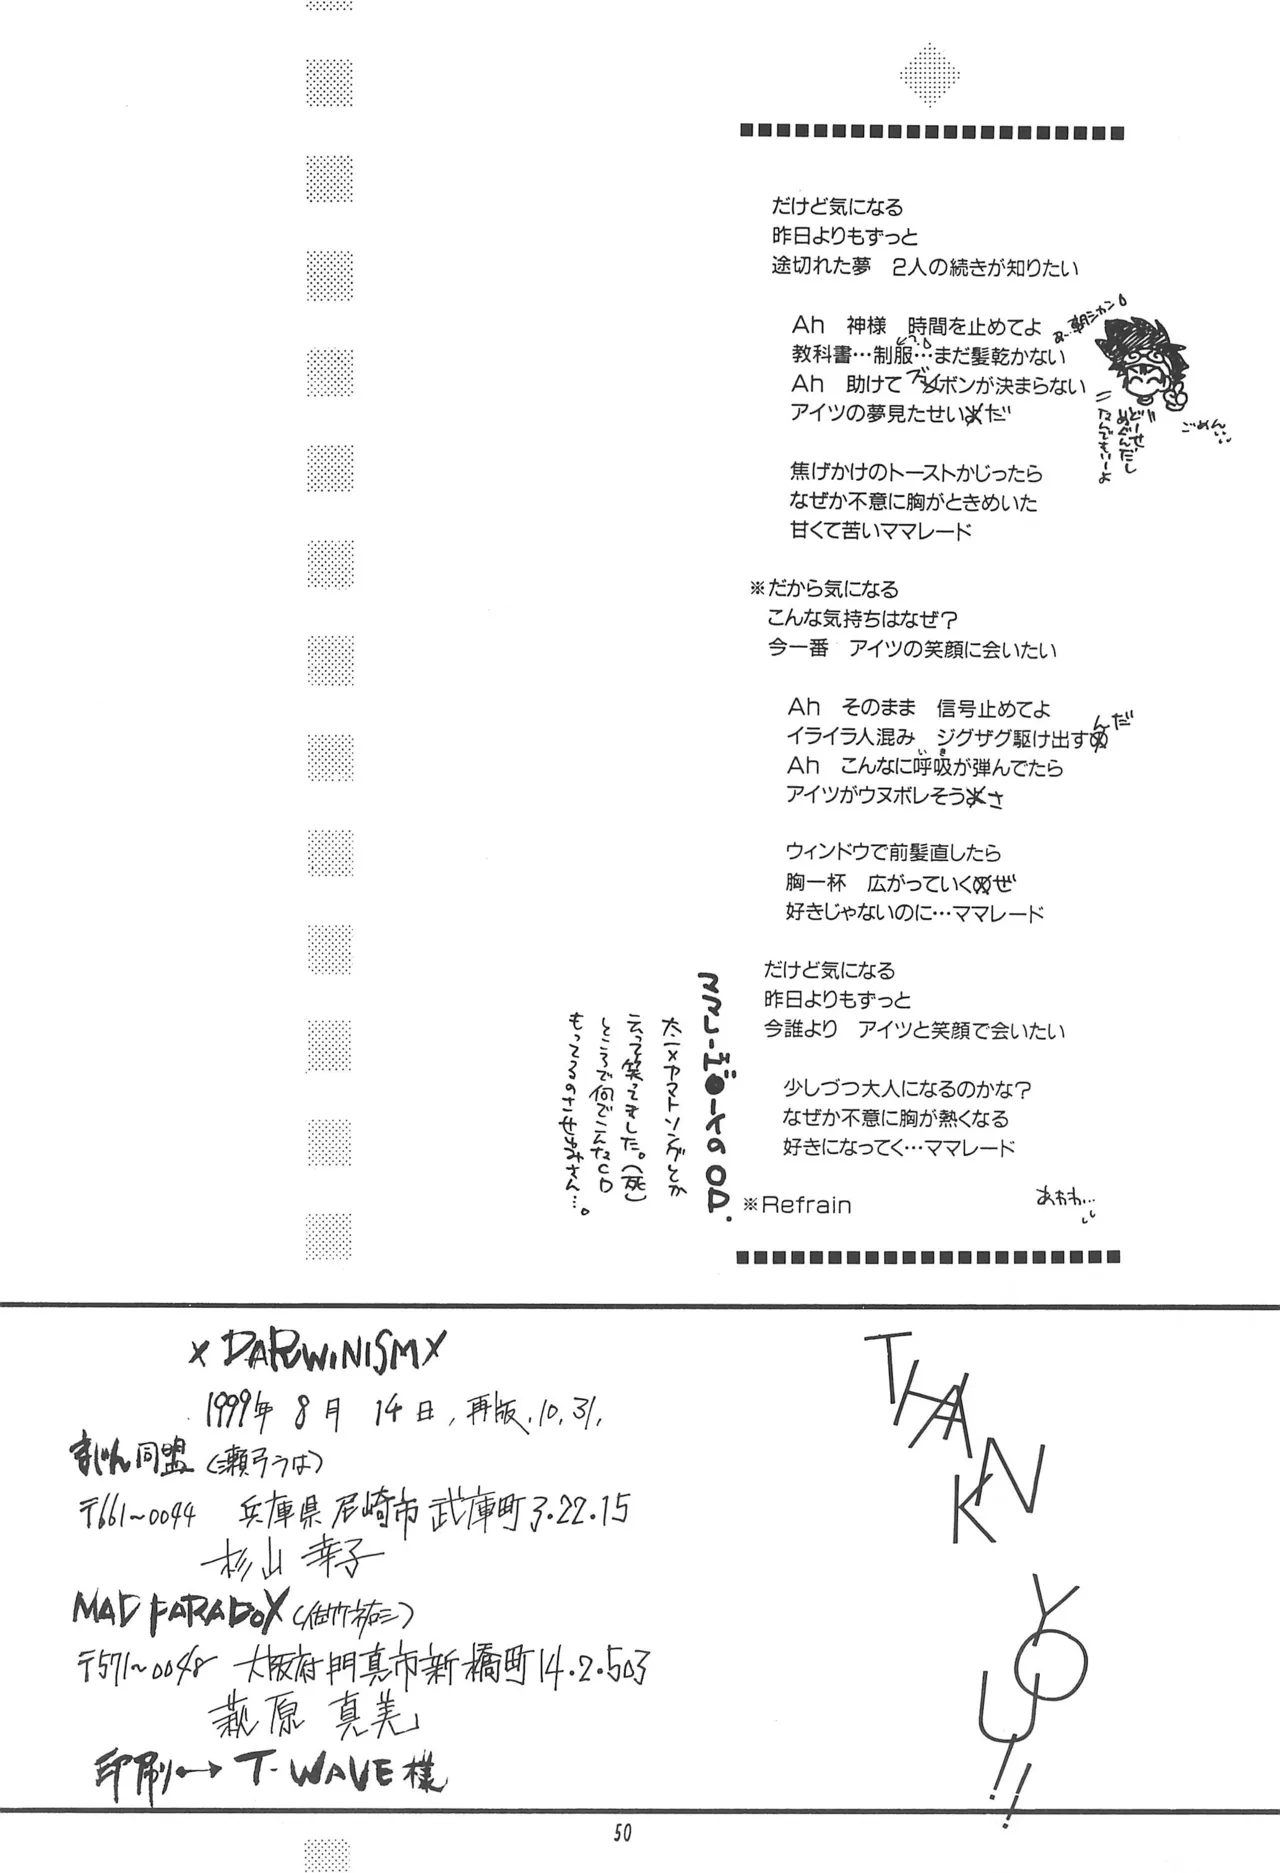 だけど気になる
昨日よりもずっと
途切れた夢　2人の続きが知りたい
Ah　神様　時間を止めてよ
教科書…制服…まだ髪乾かない
Ah　助けて　ボンが決まらない
アイツの夢見たせいだ
ごめん
どーせ
めぐんだし
なんでもいーよ
焦げかけのトーストかじったら
なぜか不意に胸がときめいた
甘くて苦いママレード
※だから気になる
こんな気持ちはなぜ？
今一番　アイツの笑顔に会いたい
Ah　そのまま　信号止めてよ
イライラ人混み　ジグザグ駆け出すんだ
Ah　こんなに呼吸が弾んでたら
いき
アイツがウヌボレそうさ
ウィンドウで前髪直したら
胸一杯　広がっていくぜ
好きじゃないのに…ママレード
だけど気になる
昨日よりもずっと
今誰より　アイツと笑顔で会いたい
少しづつ大人になるのかな？
なぜか不意に胸が熱くなる
好きになってく…ママレード
※Refrain
あわわ…
ママレード●ートのOP.
太一×ヤマトソングとか
云って笑ってました。(死)
ところで何でこんなCD
もってるのさせゆみさん…。
x DARWiNISM x
1999年 8月 14日、再版、10.31.
まじん同盟（瀬弓うは）
〒661〜0044　兵庫県尼崎市武庫町3.22.15
杉山 幸子
MAD PARADOX
〒571〜0048　大阪府門真市新橋町14.2.503
萩原 真美
印刷 → T-WAVE様
THANK
YOU!!
50